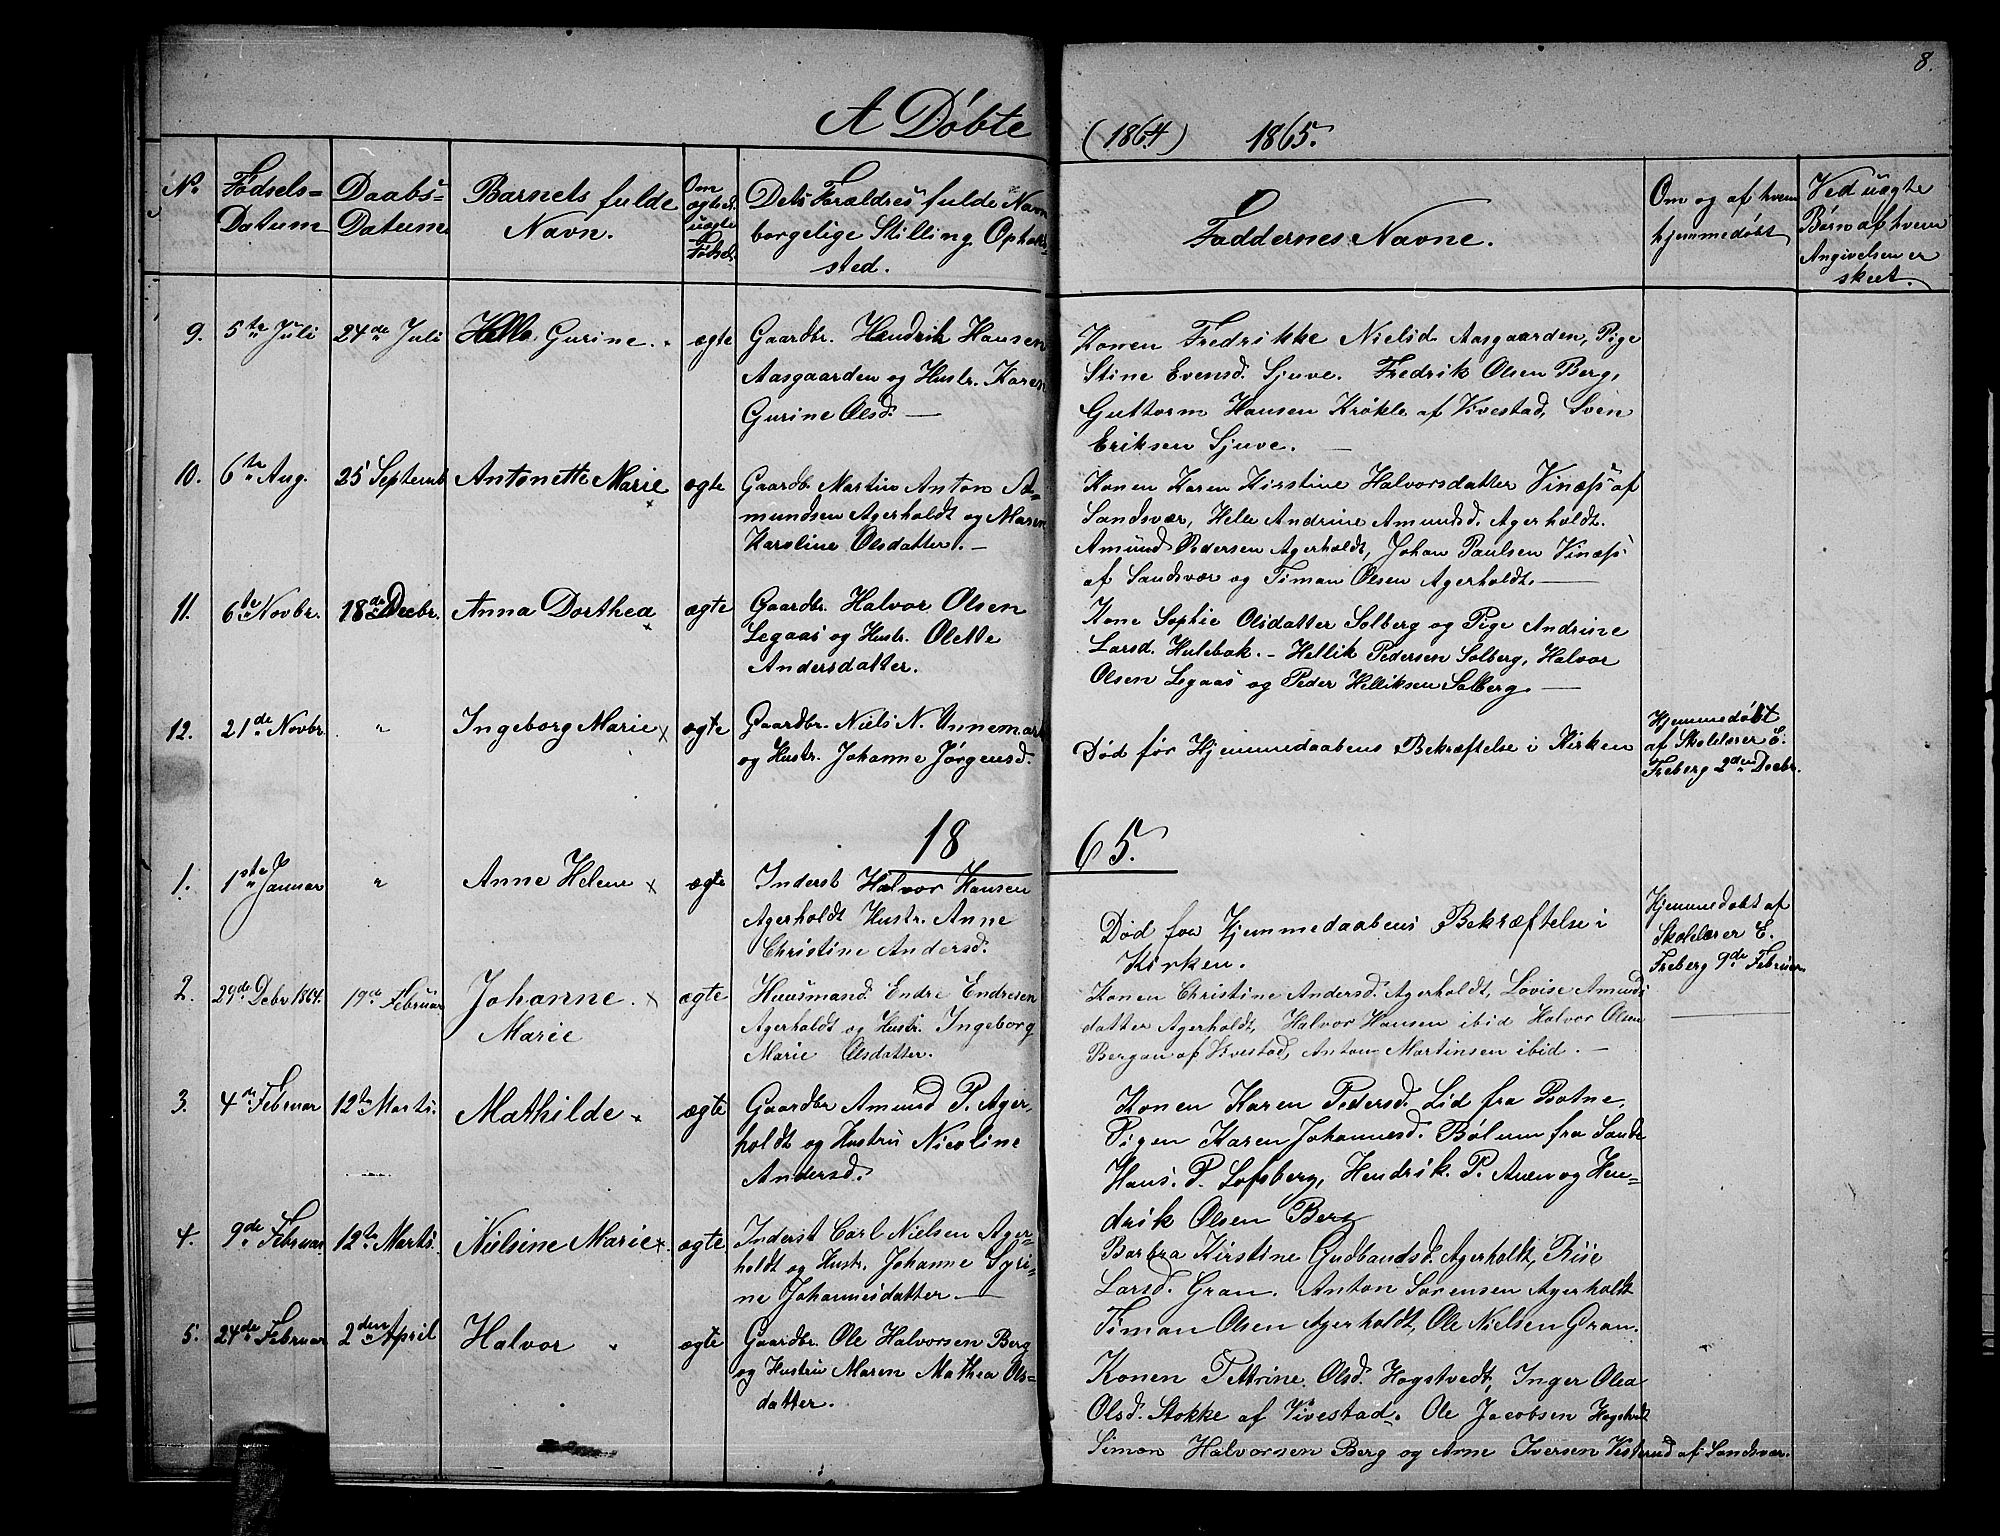 8.
A Døbte (1864) 1865.
No
Fødsels=
Datum
Daabs=
Datum
Barnets fulde
Navn.
Om
ægte el.
uægte
Fødsel.
Dets Forældres fulde Navn
borgelige Stilling Opholds-
sted.
Faddernes Navne.
Om og af hvem
hjemmedøbt
Ved uægte
Børn af hvem
Angivelsen er
skeet.
9. 5te Juli 24de Juli Helle Gurine. ægte
Gaardbr. Hendrik Hansen
Aasgaarden og Hustr. Karen
Gurine Olsd. —
Konen Fredrikke Nielsd Aasgaarden, Pige
Stine Evensd. Sjuve. Fredrik Olsen Berg,
Guttorm Hansen Krøkle af Vivestad, Sven
Eriksen Sjuve. —
10. 6te Aug. 25 Septemb Antonette Marie x ægte
Gaardb. Martin Anton A=
mundsen Agerholdt og Maren
Karoline Olsdatter. —
Konen Karen Kirstine Halvorsdatter Vinæs af
Sandsvær, Helle Andrine Amundsd. Agerholdt.
Amund Pedersen Agerholdt, Johan Paulsen Vinæs
af Sandsvær og Timan Olsen Agerholdt. —
11. 6te Novbr. 18de Decbr. Anna Dorthea x ægte
Gaardbr. Halvor Olsen
Legaas og Hustr. Olette
Andersdatter.
Kone Sophie Olsdatter Solberg og Pige Andrine
Larsd. Hulebak. – Hellik Pedersen Solberg, Halvor
Olsen Legaas og Peder Helliksen Solberg. —
12. 21de Novbr " Ingeborg Marie x ægte
Gaardbr. Niels N. Unnemark
og Hustr. Johanne Jørgensd.
Død før Hjemmedaabens Bekræftelse i Kirken
Hjemmedøbt
af Skolelærer E.
Freberg 2den Decbr.
18 65.
1. 1ste Januar " Anne Helene x ægte
Inderst Halvor Hansen
Agerholdt Hustr. Anne
Christine Andersd.
Død før Hjemmedaabens Bekræftelse i
Kirken.
Hjemmedøbt af
Skolelærer E.
Freberg 9de Februar
2. 29de Debr 1864. 19de Februar Johanne x ægte
Marie
Huusmand Endre Endresen
Agerholdt og Hustr. Ingeborg
Marie Olsdatter.
Konen Christine Andersd. Agerholdt, Lovise Amunds
datter Agerholdt, Halvor Hansen ibid Halvor Olsen
Bergan af Vivestad, Anton Martinsen ibid. —
3. 4de Februar 12te Marts. Mathilde x ægte
Gaardbr Amund P. Ager,
holdt og Hustru Nicoline
Andersd.
Konen Karen Pedersd. Lid fra Botne,
Pigen Karen Johannesd. Bølum fra Sande
Hans. P. Lofsberg, Hendrik. P. Auen og Hen=
drik Olsen Berg
4. 9de Februar 12te Marts. Nielsine Marie x ægte
Inderst Carl Nielsen Ager=
holdt og Hustr. Johanne Syri=
ne Johannesdatter. —
Barbra Kirstine Gudbandsd. Agerholdt, Riise
Larsd. Gran. Anton Sørensen Agerholdt
Timan Olsen Agerholdt, Ole Nielsen Gran.
5. 24de Februar 2den April Halvor " ægte
Gaardbr. Ole Halvorsen Berg
og Hustru Maren Mathea Ols=
datter.
Konen Pettrine Olsd. Hogstvedt, Inger Olea
Olsd. Stokke af Vivestad. Ole Jacobsen Hogstvedt
Simon Halvorsen Berg og Arne Iversen Visterud af Sandsvær.